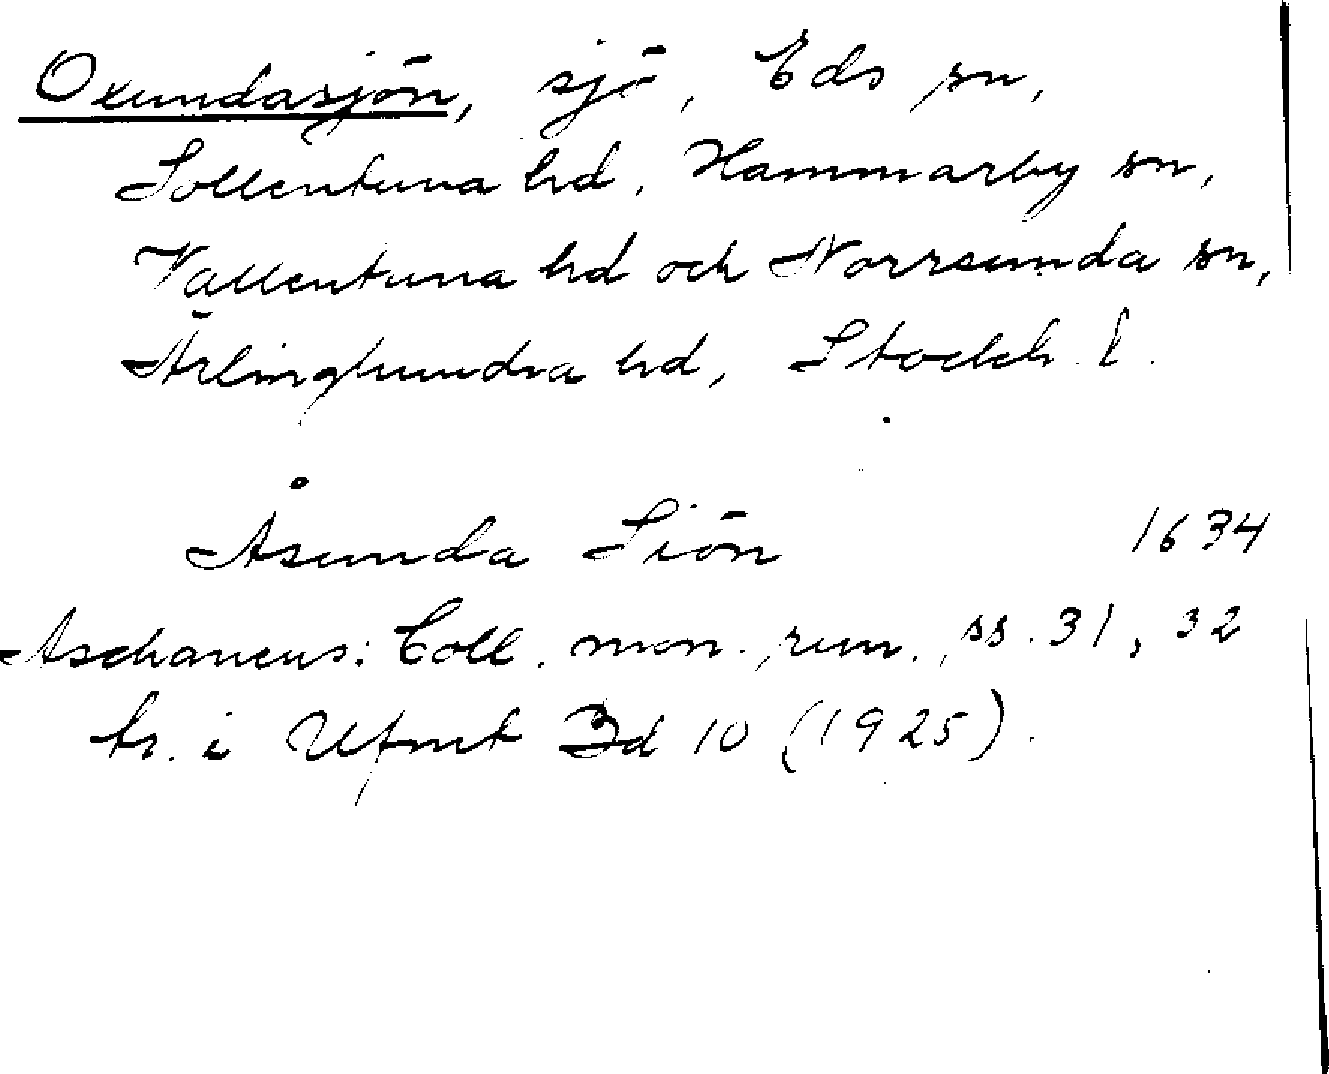 Oxundasjön, sjö, Eds sn,
Sollentuna hd, Hammarby sn,
Vallentuna hd och Norrsunda sn,
Ärlinghundra hd, Stockh. l.
Åsunda Siön 1634
Aschaneus: Coll. mon. run., ss. 31, 32
tr. i Ufmt Bd 10 (1925).